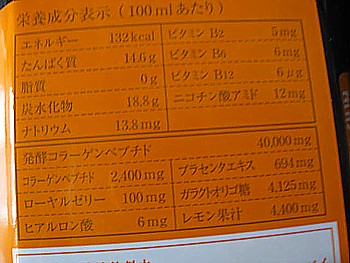 栄養成分表示(100mlあたり)
エネルギー 132kcal ビタミンB2 5mg
たんぱく質 14.6g ビタミンB6 6mg
脂質 0g ビタミンB12 6μg
炭水化物 18.8g ニコチン酸アミド 12mg
ナトリウム 13.8mg
発酵コラーゲンペプチド 40,000mg
コラーゲンペプチド 2,400mg プラセンタエキス 694mg
ローヤルゼリー 100mg ガラクトオリゴ糖 4,125mg
ヒアルロン酸 6mg レモン果汁 4,400mg